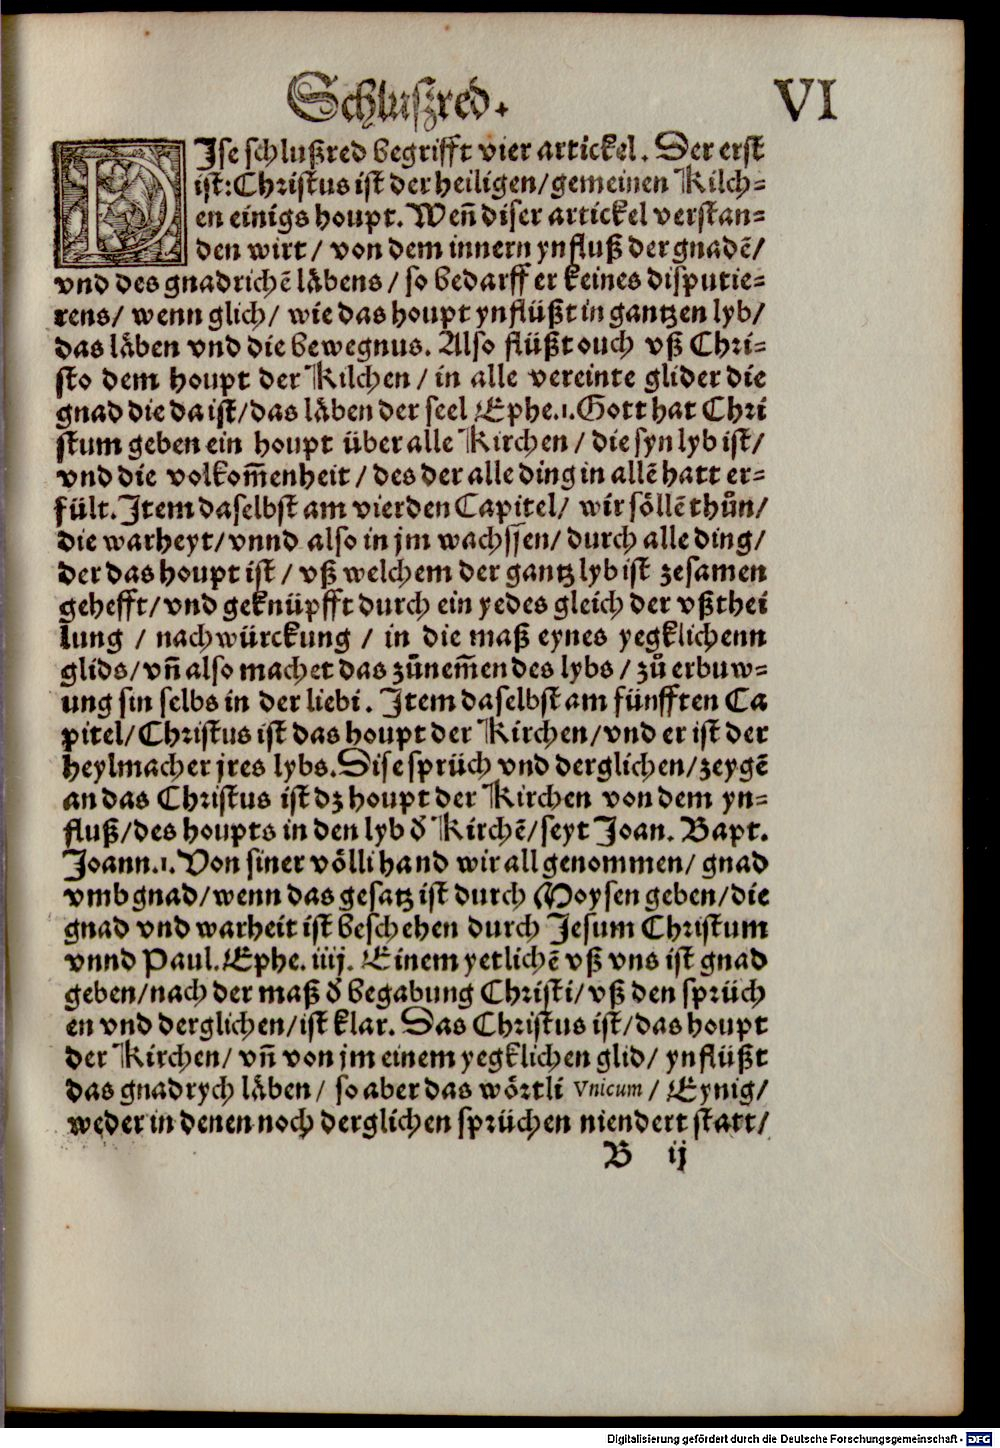 Schluszred. VI
DIse schlußred begrifft vier artickel. Der erst
ist: Christus ist der heiligen/ gemeinen Kilch=
en einigs houpt. Weñ diser artickel verstan=
den wirt / von dem innern ynfluß der gnadẽ/
vnd des gnadrichẽ läbens / so bedarff er keines disputie=
rens/ wenn glich/ wie das houpt ynflüßt in gantzen lyb/
das läben vnd die bewegnus. Also flüßt ouch vß Chri=
sto dem houpt der Kilchen / in alle vereinte glider die
gnad die da ist/ das läben der seel Ephe.1. Gott hat Chri
stum geben ein houpt über alle Kirchen / die syn lyb ist/
vnd die volkom̃enheit / des der alle ding in allẽ hatt er=
fült. Item daselbst am vierden Capitel/ wir söllẽ thůn/
die warheyt/ vnnd also in jm wachssen/ durch alle ding/
der das houpt ist / vß welchem der gantz lyb ist zesamen
gehefft/ vnd geknüpfft durch ein yedes gleich der vßthei
lung / nach würckung / in die maß eynes yegklichenn
glids/ vñ also machet das zůnem̃en des lybs / zů erbuw=
ung sin selbs in der liebi. Item daselbst am fünfften Ca
pitel/ Christus ist das houpt der Kirchen/ vnd er ist der
heylmacher jres lybs. Dise sprüch vnd derglichen/ zeygẽ
an das Christus ist dz houpt der Kirchen von dem yn=
fluß/ des houpts in den lyb ð Kirchẽ/ seyt Joan. Bapt.
Joann.1. Von siner völli hand wir all genommen/ gnad
vmb gnad/ wenn das gesatz ist durch Moysen geben/ die
gnad vnd warheit ist beschehen durch Jesum Christum
vnnd Paul. Ephe. iiij. Einem yetlichẽ vß vns ist gnad
geben/ nach der maß ð begabung Christi/ vß den sprüch
en vnd derglichen/ ist klar. Das Christus ist/ das houpt
der Kirchen/ vñ von jm einem yegklichen glid/ ynflüßt
das gnadrych läben/ so aber das wörtli Vnicum / Eynig/
weder in denen noch derglichen sprüchen niendert statt/
B ij
Digitalisierung gefördert durch die Deutsche Forschungsgemeinschaft - DFG